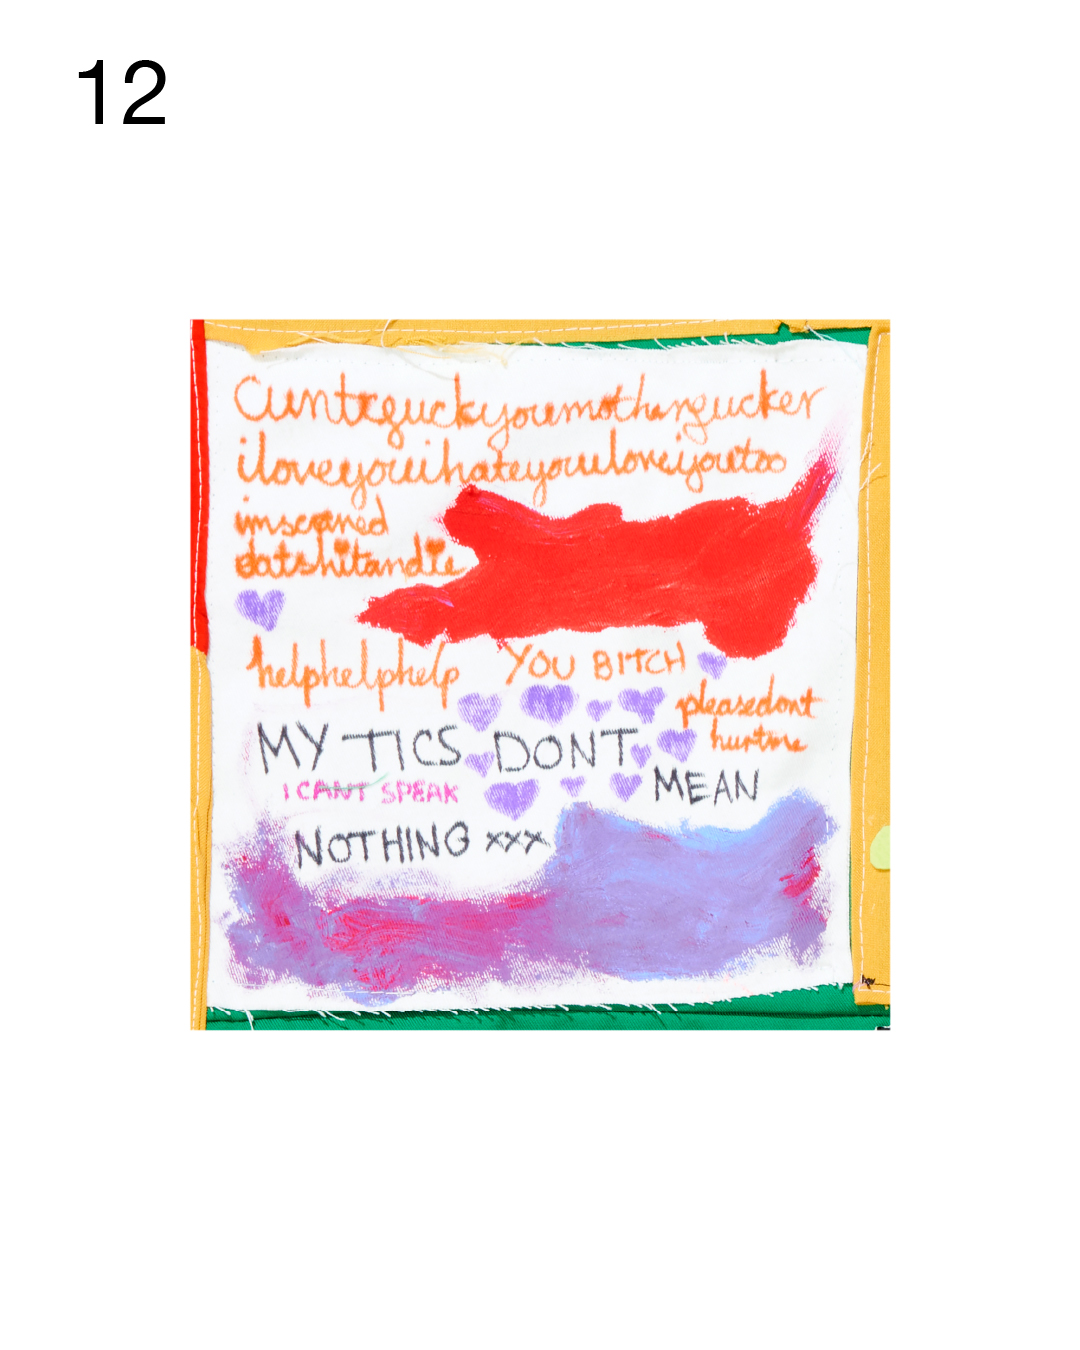 12
Cuntfuckyoumotherfucker
iloveyouihateyouuloveyoutoo
imscared
eatshitandie
helphelphelp YOU BITCH
pleasedont
hurtme
MY TICS DONT
I CANT SPEAK
MEAN
NOTHING xxx